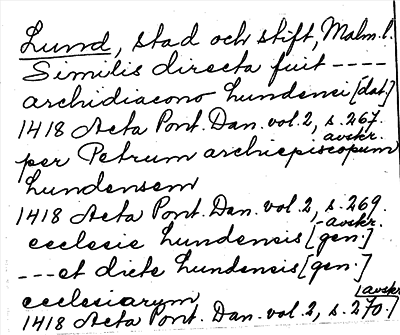 Lund, stad och stift, Malm. l.
Similis directa fuit ----
archidiacono Lundensi [dat.]
1418 Acta Pont. Dan. vol. 2, s. 267.
avskr.
per Petrum archiepiscopum
Lundensem
1418 Acta Pont. Dan. vol. 2, s. 269.
avskr.
ecclesie Lundensis [gen.]
---et dicte Lundensis [gen.]
ecclesiarum
avskr.
1418 Acta Pont. Dan. vol. 2, s. 270.